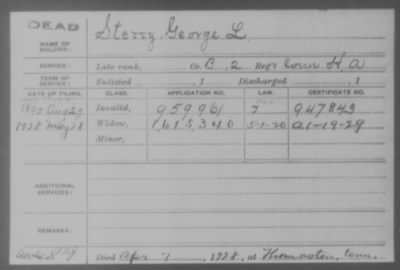 DEAD
NAME OF SOLDIER: Sterry, George L.
SERVICE: Late rank, Co. B, 2 Reg't Conn H. A
TERM OF SERVICE: Enlisted , 1 Discharged , 1
DATE OF FILING. CLASS. APPLICATION NO. LAW. CERTIFICATE NO.
1890 Aug 29 Invalid, 959,961 J 947843
1928 May 28 Widow, 1,615,340 5-1-20 A1-19-29
Minor,
ADDITIONAL SERVICES:
REMARKS:
Died Apr 7, 1928, at Thomaston, Conn.